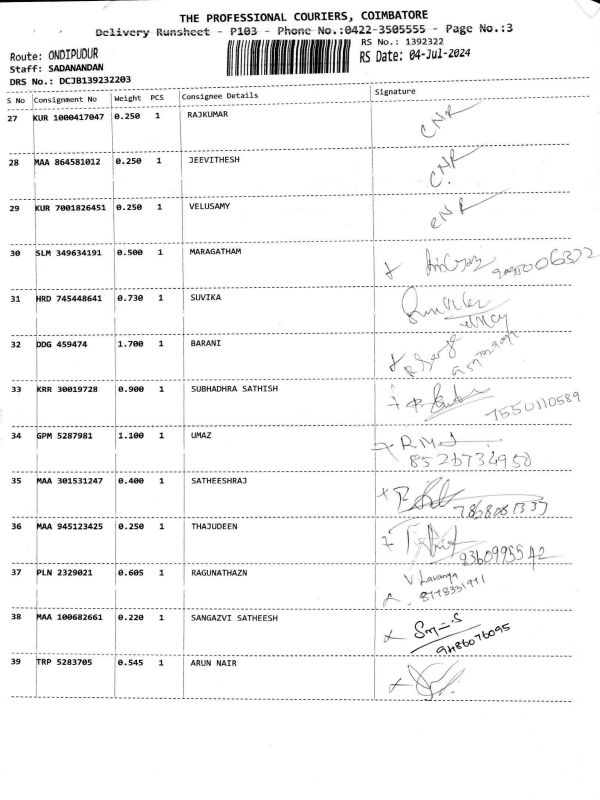 THE PROFESSIONAL COURIERS, COIMBATORE
Delivery Runsheet - P103 - Phone No.:0422-3505555 - Page No.:3
RS No.: 1392322
Route: ONDIPUDUR
RS Date: 04-Jul-2024
Staff: SADANANDAN
DRS No.: DCJB139232203
S No Consignment No Weight PCS Consignee Details Signature
27 KUR 1000417047 0.250 1 RAJKUMAR CNR
28 MAA 864581012 0.250 1 JEEVITHESH CNR
29 KUR 7001826451 0.250 1 VELUSAMY CNR
30 SLM 349634191 0.500 1 MARAGATHAM
31 HRD 745448641 0.730 1 SUVIKA
32 DDG 459474 1.700 1 BARANI
33 KRR 30019728 0.900 1 SUBHADHRA SATHISH
7550110589
34 GPM 5287981 1.100 1 UMAZ
8526734950
35 MAA 301531247 0.400 1 SATHEESHRAJ
36 MAA 945123425 0.250 1 THAJUDEEN
37 PLN 2329021 0.605 1 RAGUNATHAZN V Lavanya
38 MAA 100682661 0.220 1 SANGAZVI SATHEESH
9486076095
39 TRP 5283705 0.545 1 ARUN NAIR